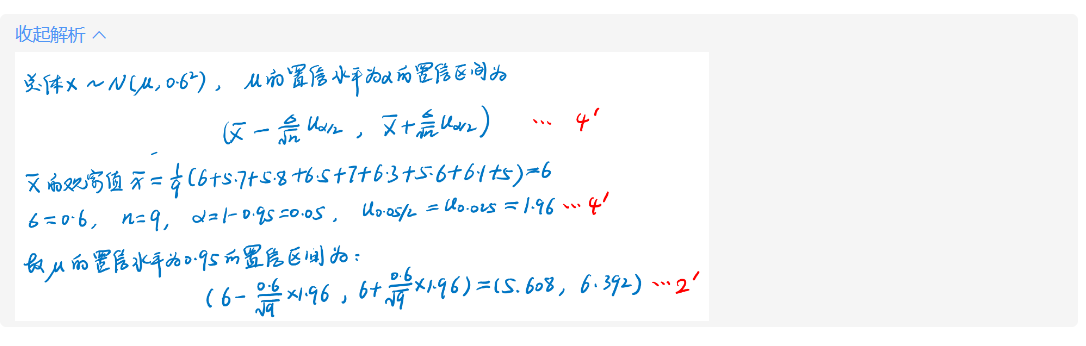 收起解析
总体X ~ N(μ, 0.6²), μ的置信水平为α的置信区间为
(X̄ - σ/√n u_{α/2}, X̄ + σ/√n u_{α/2}) … 4'
X̄的观察值 x̄ = 1/9(6+5.7+5.8+6.5+7+6.3+5.6+6.1+5)=6
σ=0.6, n=9, α=1-0.95=0.05, u_{0.05/2} = u_{0.025} = 1.96 … 4'
故μ的置信水平为0.95的置信区间为:
(6 - 0.6/√9 ×1.96, 6 + 0.6/√9 ×1.96) = (5.608, 6.392) … 2'